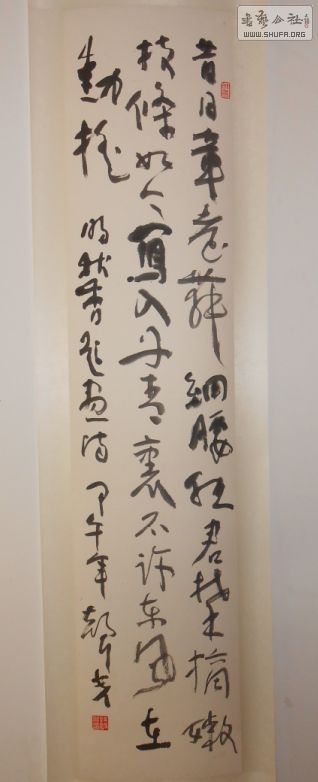 書藝公社
WWW.SHUFA.ORG
昔日章臺舞細腰任君摘嫩
枝條如今寫入丹青裏不許東風在
動搖 明秋香題畫詩 甲午年